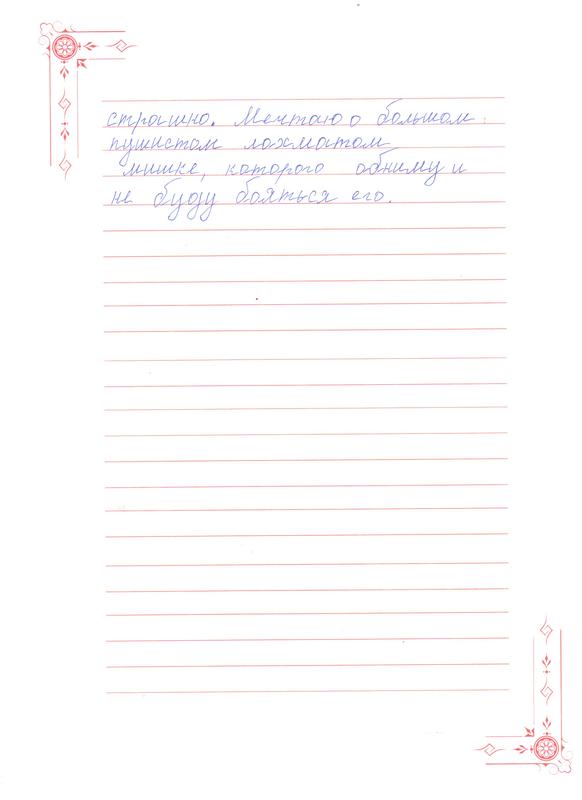 страшно. Мечтаю о большом
пушистом лохматом
мишке, которого обниму и
не буду бояться его.